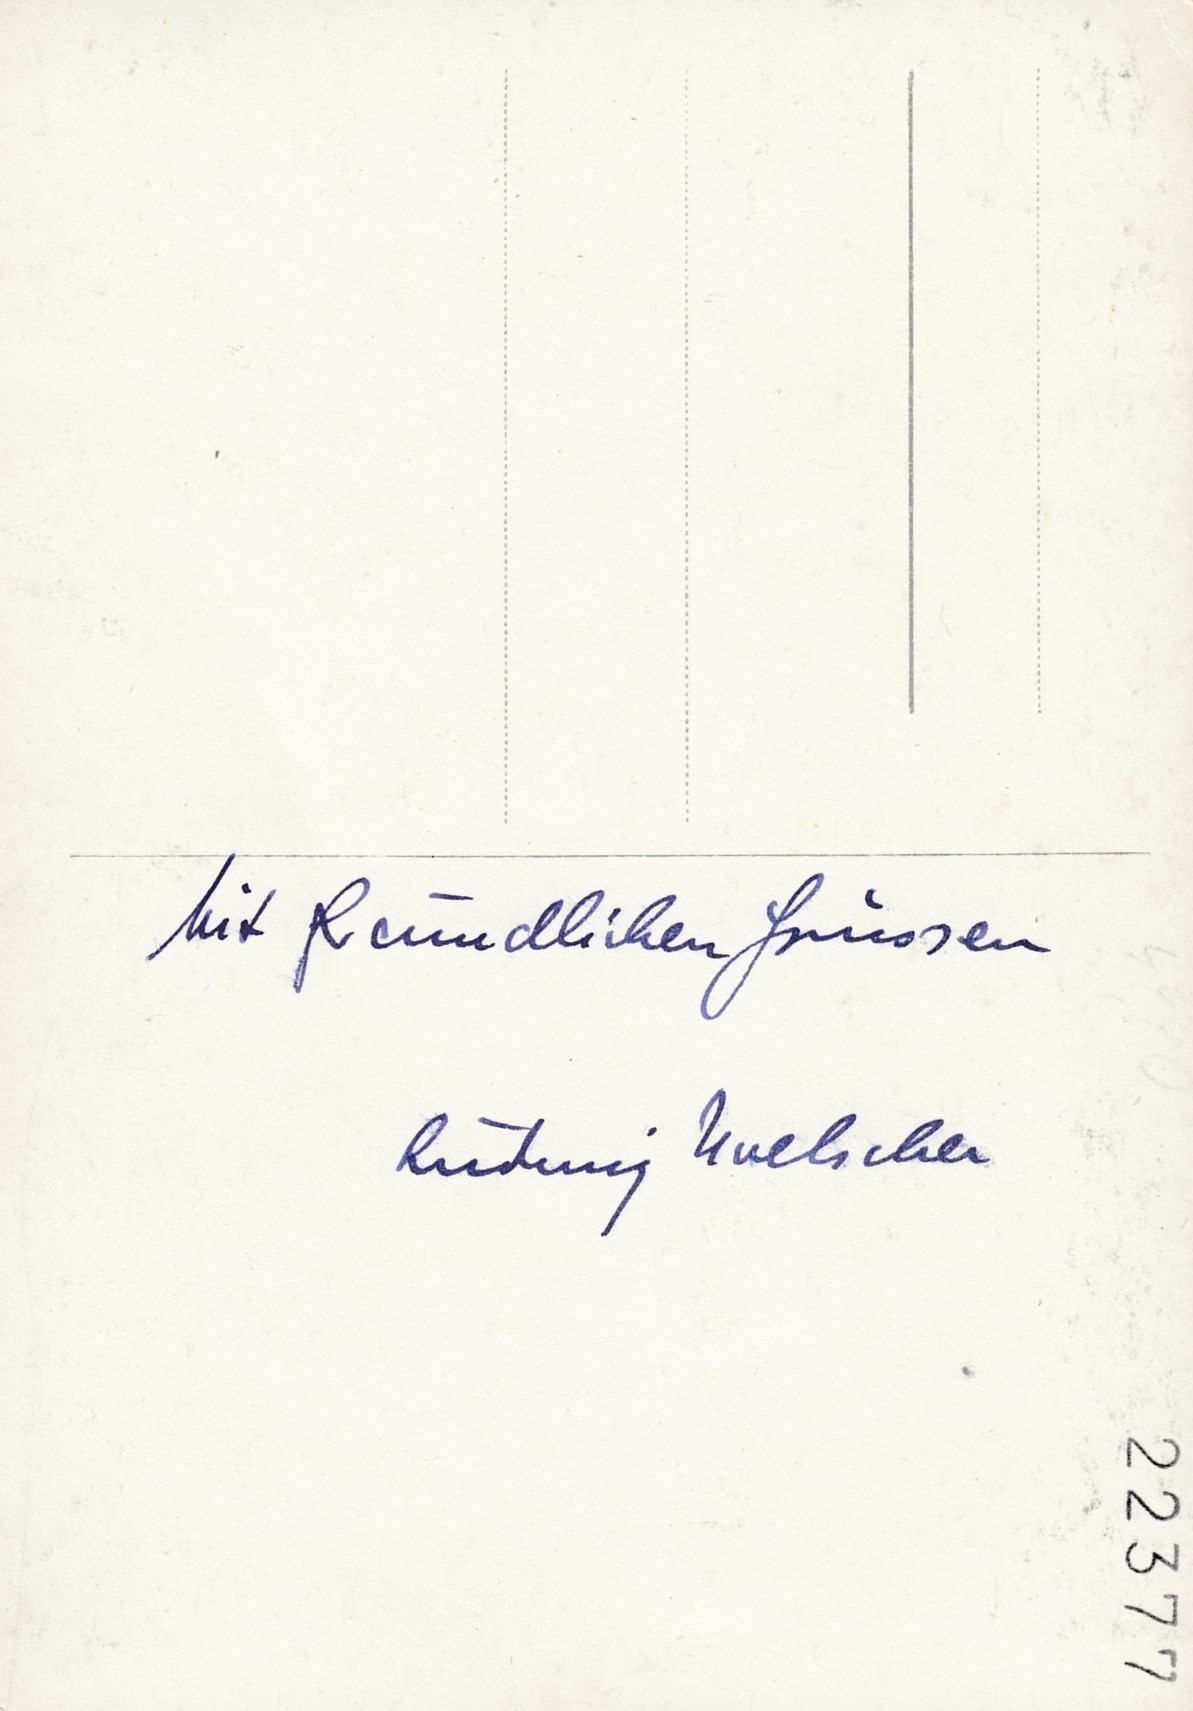 Mit freundlichen Grüssen
Ludwig Hoelscher
22377